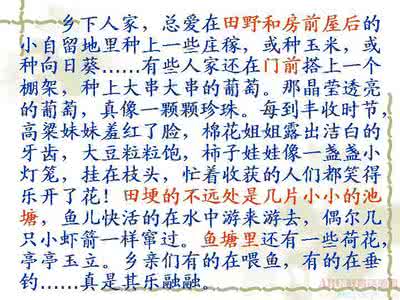 乡下人家，总爱在田野和房前屋后的
小自留地里种上一些庄稼，或种玉米，或
种向日葵......有些人家还在门前搭上一个
棚架，种上大串大串的葡萄。那晶莹透亮
的葡萄，真像一颗颗珍珠。每到丰收时节，
高粱妹妹羞红了脸，棉花姐姐露出洁白的
牙齿，大豆粒粒饱，柿子娃娃像一盏盏小
灯笼，挂在枝头，忙着收获的人们都笑得
乐开了花！田埂的不远处是几片小小的池
塘，鱼儿快活的在水中游来游去，偶尔几
只小虾箭一样窜过。鱼塘里还有一些荷花，
亭亭玉立。乡亲们有的在喂鱼，有的在垂
钓......真是其乐融融。